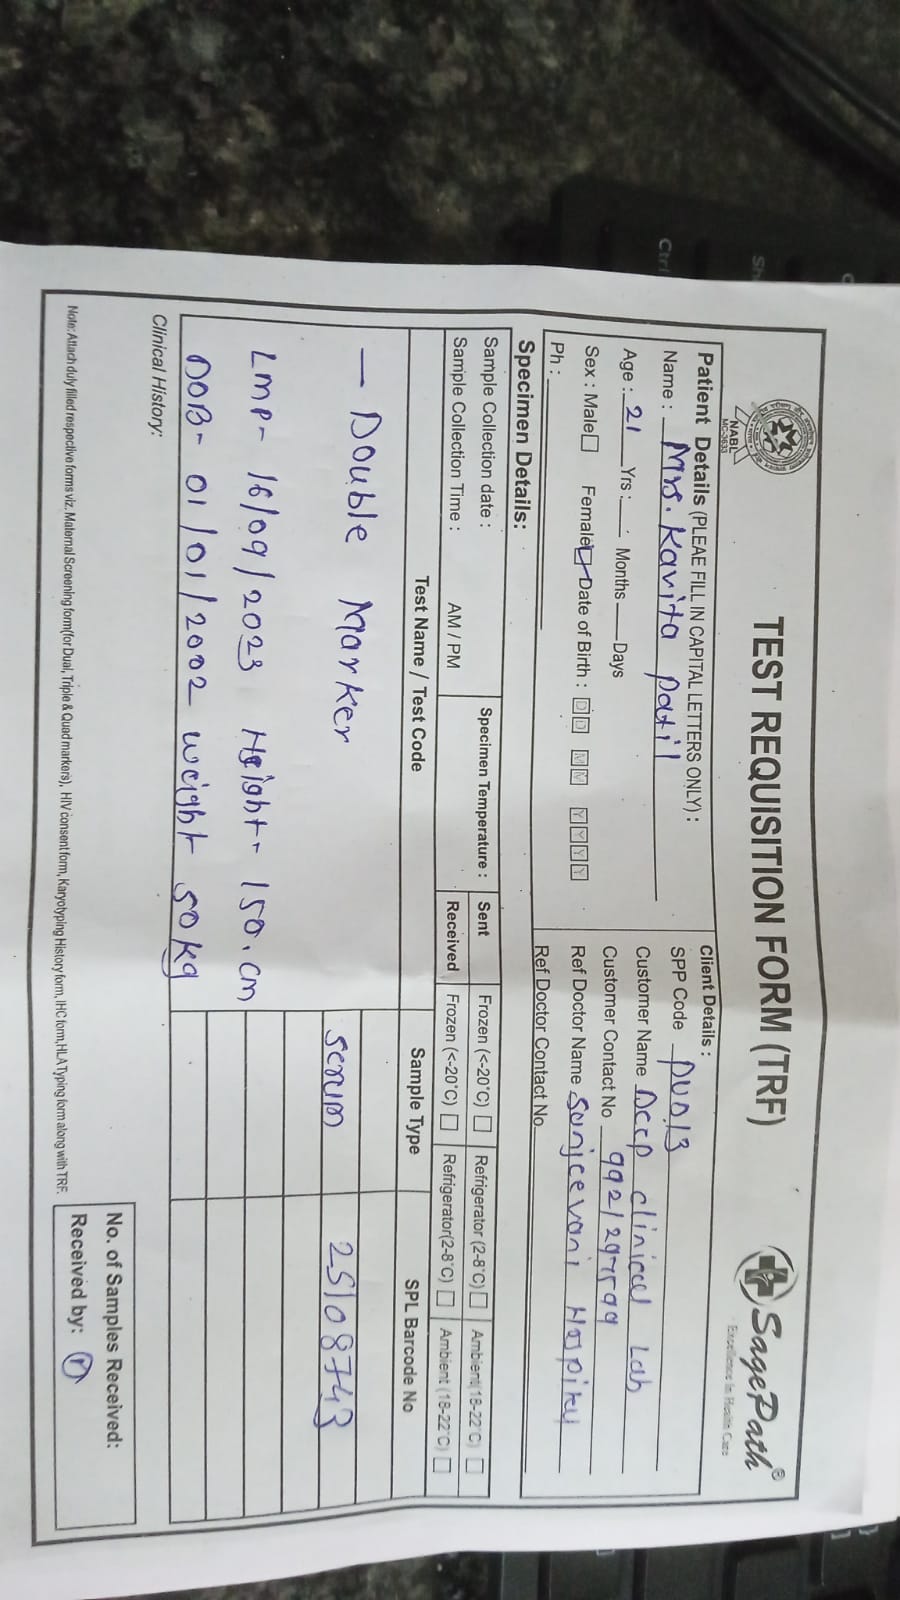 TEST REQUISITION FORM (TRF)
NABL
MC-3633
SagePath®
Excellence In Health Care
Patient Details (PLEAE FILL IN CAPITAL LETTERS ONLY) :
Name : Mrs. Kavita patil
Age : 21 Yrs : Months Days
Sex : Male Female Date of Birth : D D M M Y Y Y Y
Ph :
Client Details :
SPP Code PU013
Customer Name Deep clinical Lab
Customer Contact No
Ref Doctor Name Sanjeevani Hospital
Ref Doctor Contact No
Specimen Details:
Sample Collection date : Specimen Temperature : Sent Frozen (<-20°C) Refrigerator (2-8°C) Ambient(18-22°C)
Sample Collection Time : AM / PM Received Frozen (<-20°C) Refrigerator(2-8°C) Ambient (18-22°C)
Test Name / Test Code Sample Type SPL Barcode No
- Double Marker serum 25108743
Lmp- 16/09/2023 Height- 150.cm
DOB- 01/01/2002 weight 50kg
Clinical History:
No. of Samples Received:
Received by:
Note: Attach duly filled respective forms viz. Maternal Screening form(for Dual, Triple & Quad markers), HIV consent form, Karyotyping History form, IHC form,HLA Typing form along with TRF.
Ctrl